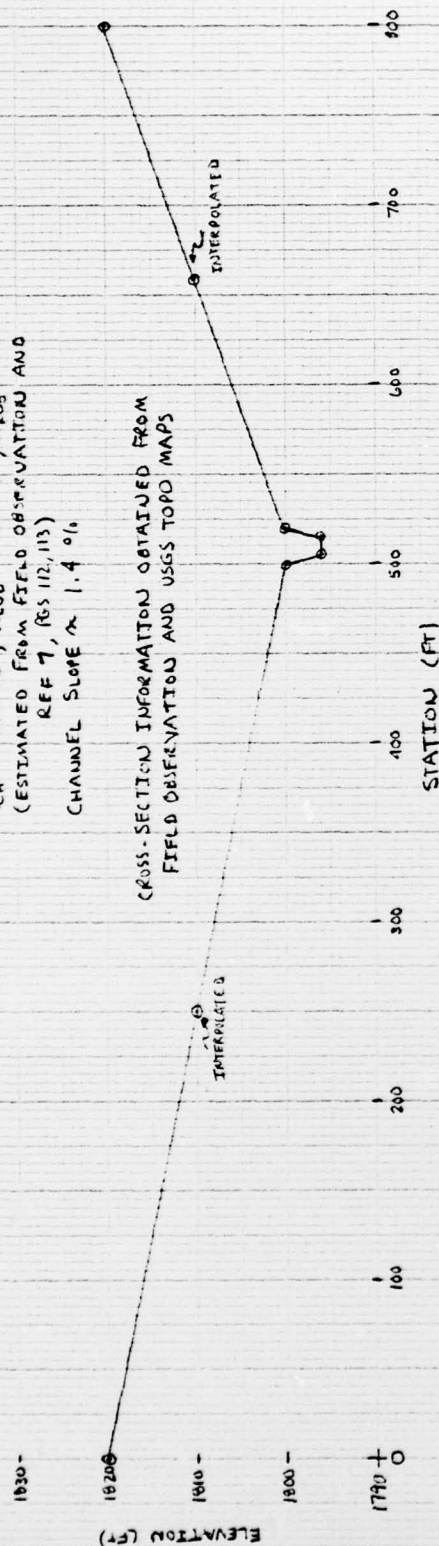 (ESTIMATED FROM FIELD OBSERVATION AND
REF 7, PGS 112, 113)
CHANNEL SLOPE ≈ 1.4 %
CROSS-SECTION INFORMATION OBTAINED FROM
FIELD OBSERVATION AND USGS TOPO MAPS
INTERPOLATED
INTERPOLATED
1830
1820
1810
1800
1790
ELEVATION (FT)
0
100
200
300
400
500
600
700
800
STATION (FT)